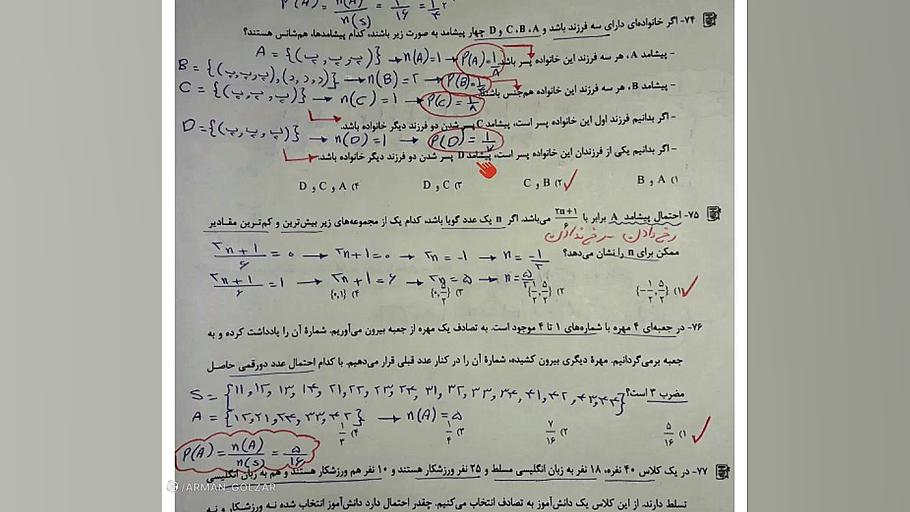 P(A) = n(A)/n(S) = 1/16 = 1/4²
۷۴- اگر خانواده‌ای دارای سه فرزند باشد و A، B، C و D چهار پیشامد به صورت زیر باشند، کدام پیشامدها، هم‌شانس هستند؟
- پیشامد A، هر سه فرزند این خانواده پسر باشد. P(A)=1/8 ← n(A)=1 ← A = {(پ,پ,پ)}
- پیشامد B، هر سه فرزند این خانواده هم‌جنس باشند. P(B)= ← n(B)=۲ ← B = {(پ,پ,پ),(د,د,د)}
C = {(پ,پ,پ)} → n(C)=1 → P(C)=1/8
- اگر بدانیم فرزند اول این خانواده پسر است، پیشامد C پسر شدن دو فرزند دیگر خانواده باشد.
D={(پ,پ,پ)} → n(D)=1 → P(D)=1/7
- اگر بدانیم یکی از فرزندان این خانواده پسر است، پیشامد D پسر شدن دو فرزند دیگر خانواده باشد.
۱) A و B ۲) B و C ۳) C و D ۴) A و C و D
۷۵- احتمال پیشامد A برابر با (2n+1)/6 می‌باشد. اگر n یک عدد گویا باشد، کدام یک از مجموعه‌های زیر بیش‌ترین و کم‌ترین مقادیر
رخ دادن - رخ ندادن
ممکن برای n را نشان می‌دهد؟
(۲n+1)/۶ = ۰ → ۲n+1=۰ → ۲n = -1 → n = -1/۲
(۲n+1)/۶ = 1 → ۲n+1=۶ → ۲n = ۵ → n = ۵/۲
۱) {-۱/۲, ۵/۲} ۲) {۱/۲, ۵/۲} ۳) {۰, ۵/۲} ۴) {۰,۱}
۷۶- در جعبه‌ای ۴ مهره با شماره‌های ۱ تا ۴ موجود است. به تصادف یک مهره از جعبه بیرون می‌آوریم. شمارهٔ آن را یادداشت کرده و به
جعبه برمی‌گردانیم. مهرهٔ دیگری بیرون کشیده، شمارهٔ آن را در کنار عدد قبلی قرار می‌دهیم. با کدام احتمال عدد دورقمی حاصل
مضرب ۳ است؟
S = {11, 1۲, 1۳, 1۴, ۲1, ۲۲, ۲۳, ۲۴, ۳1, ۳۲, ۳۳, ۳۴, ۴1, ۴۲, ۴۳, ۴۴}
A = {1۲, ۲1, ۲۴, ۳۳, ۴۲} → n(A) = ۵
۱) ۵/۱۶ ۲) ۷/۱۶ ۳) ۱/۴ ۴) ۱/۳
P(A) = n(A)/n(S) = ۵/1۶
۷۷- در یک کلاس ۴۰ نفره، ۱۸ نفر به زبان انگلیسی مسلط و ۲۵ نفر ورزشکار هستند و ۱۰ نفر هم ورزشکار هستند و هم به زبان انگلیسی
/ARMAN_GOLZAR
تسلط دارند. از این کلاس یک دانش‌آموز به تصادف انتخاب می‌کنیم. چقدر احتمال دارد دانش‌آموز انتخاب شده نه ورزشکار و نه